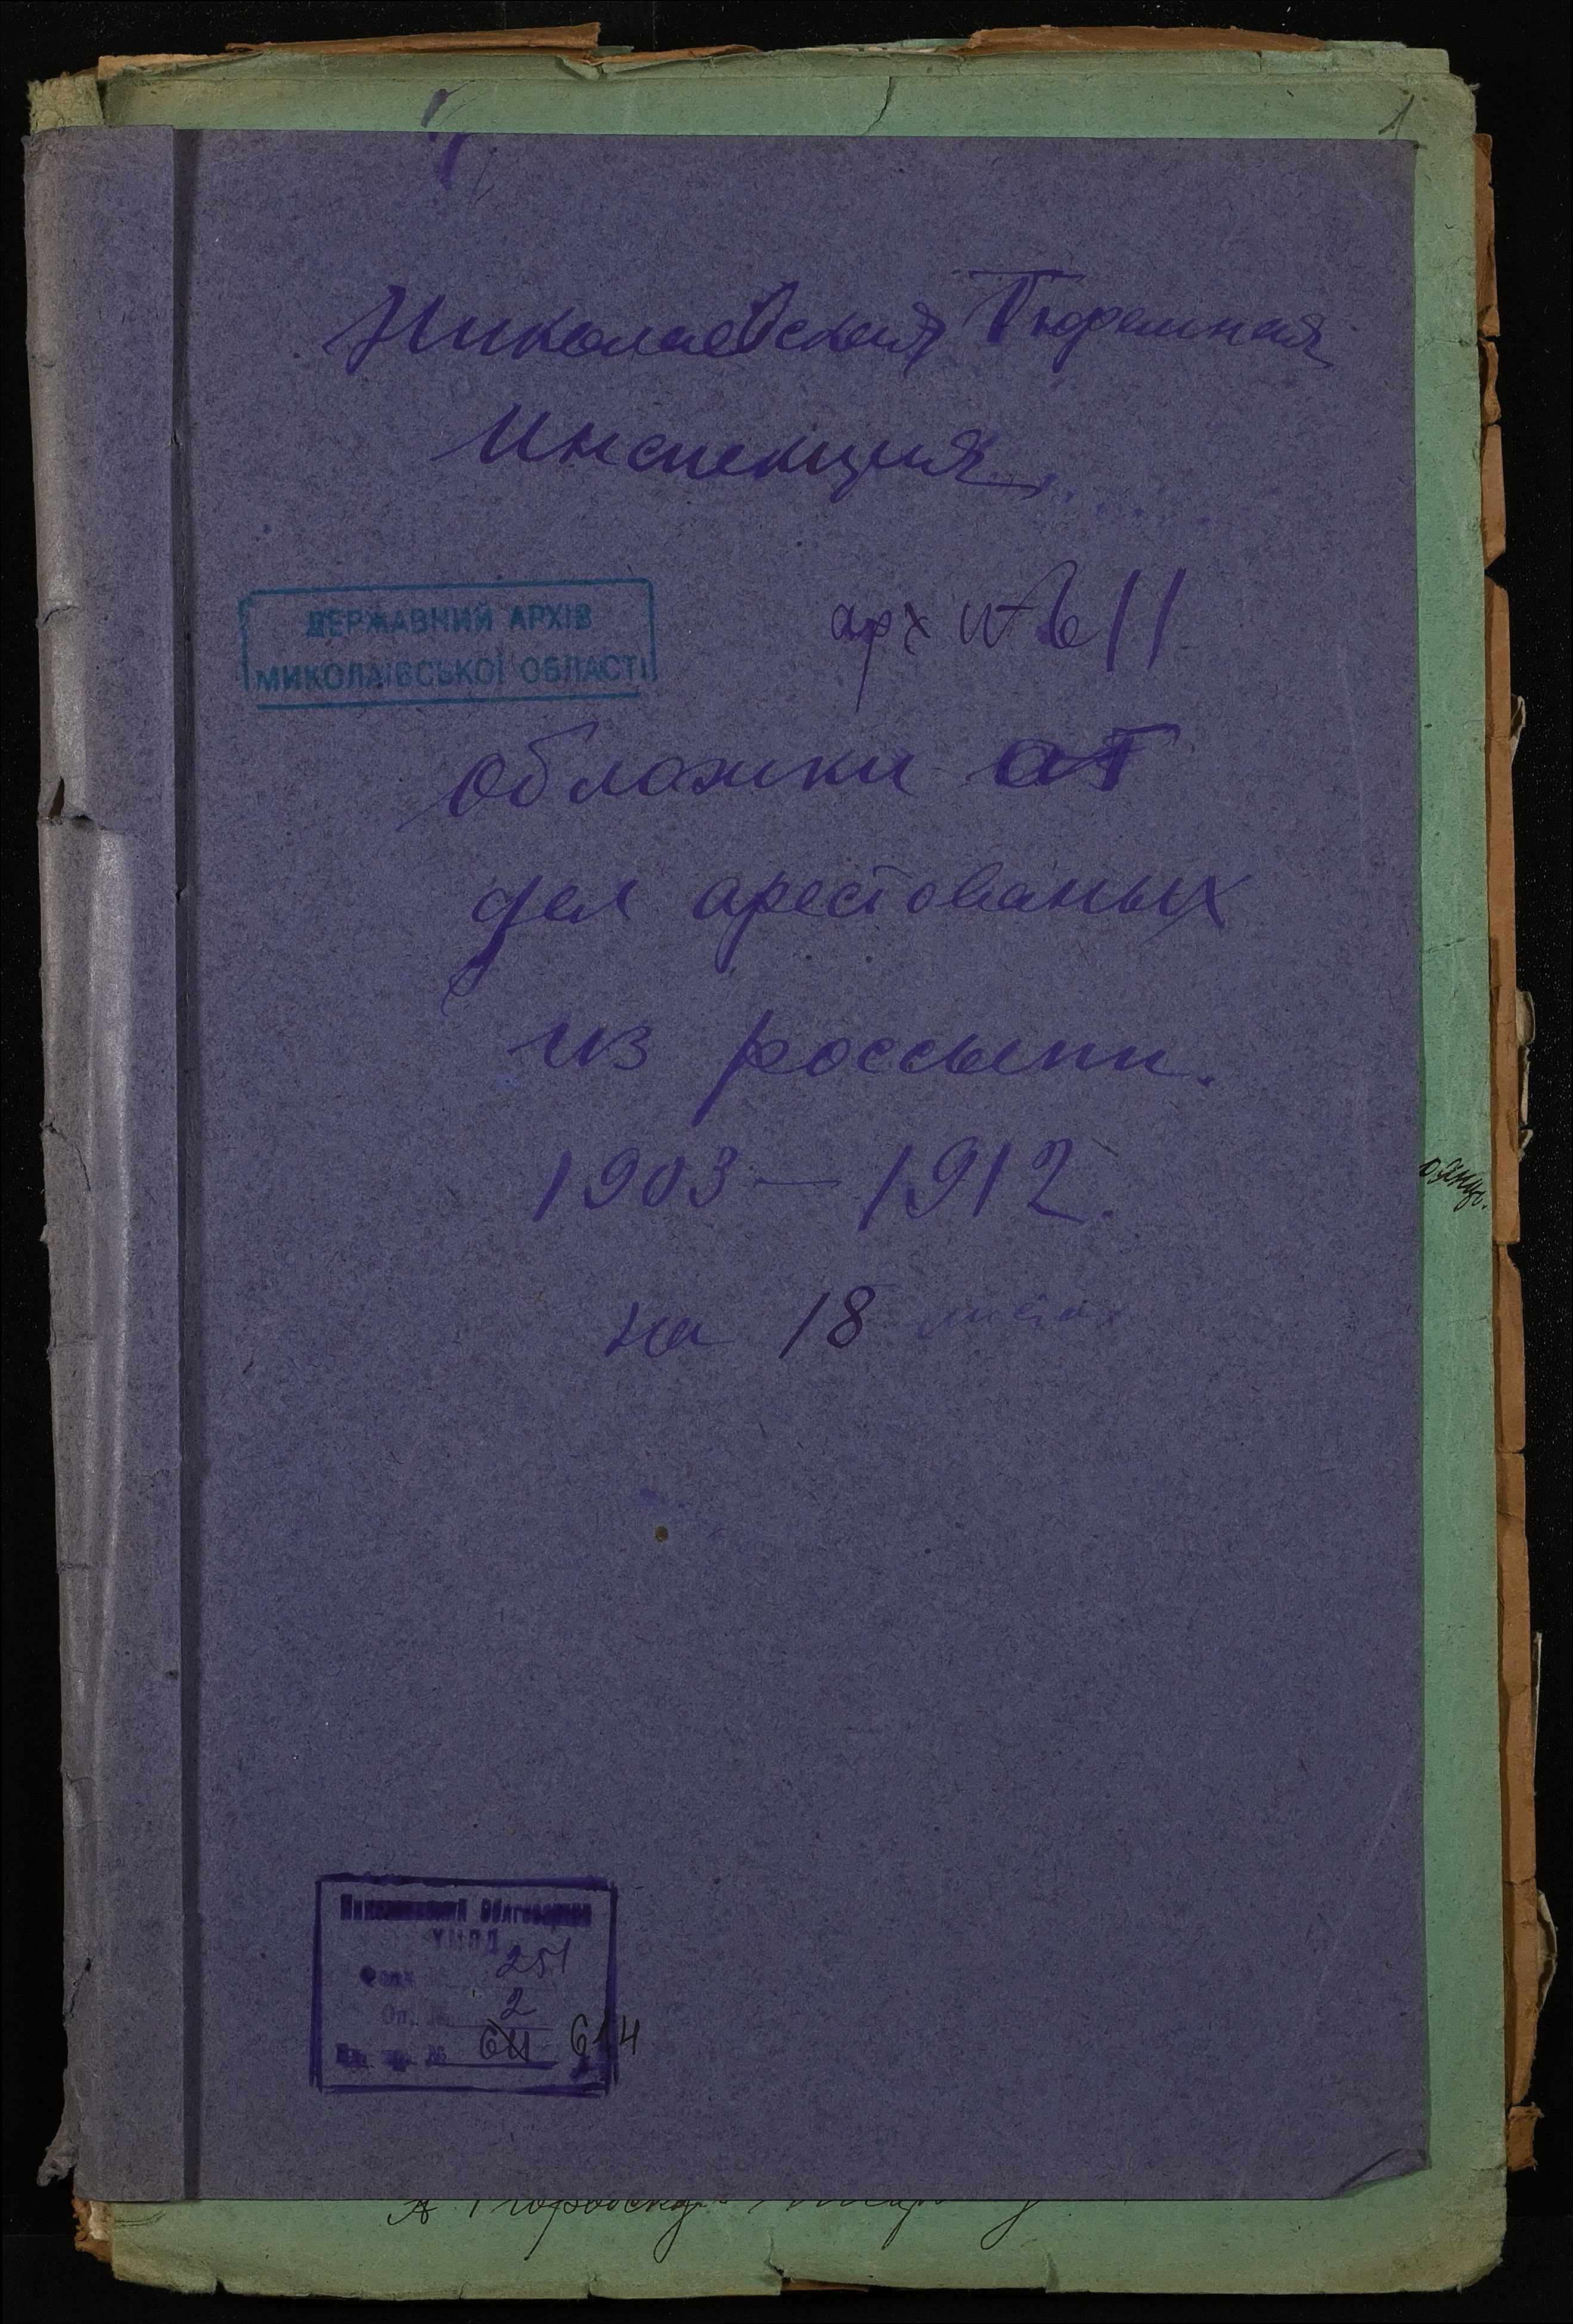 1
Николаевская Тюремная
Инспекция
ДЕРЖАВНИЙ АРХІВ
МИКОЛАЇВСЬКОЇ ОБЛАСТІ
арх № 611
обложки от
дел арестованых
из россыпи.
1903 — 1912.
на 18 листах
Николаевский Облгосархив
УМВД
Фонд 251
Оп. № 2
Ед. хр. № 611 614